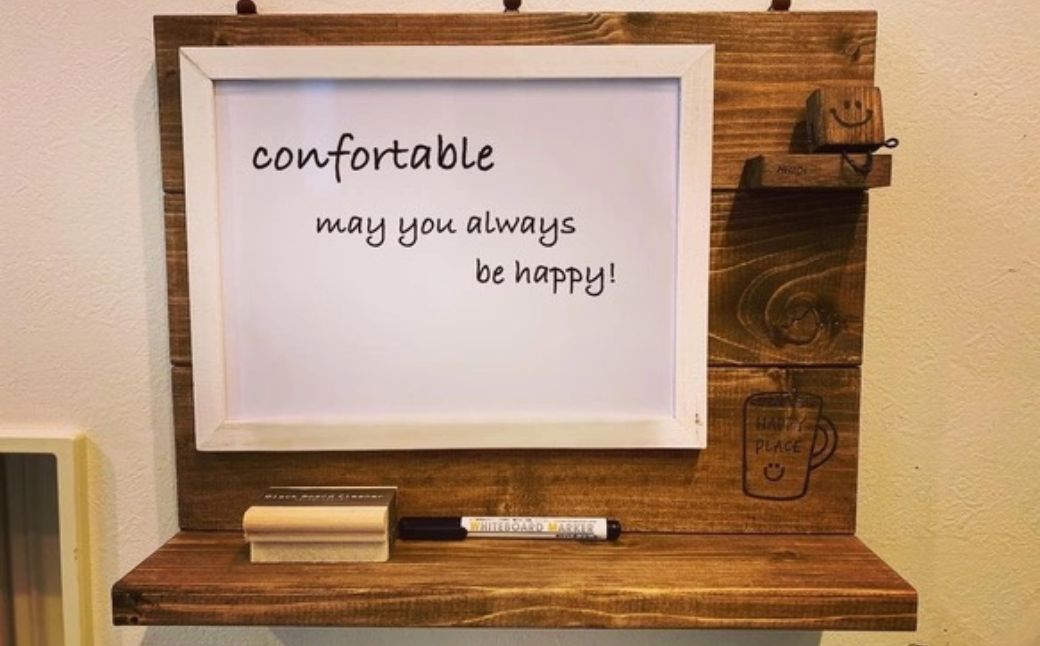 confortable
may you always
be happy!
HAPPY
PLACE
Black Board Cleaner
WHITEBOARD MARKER